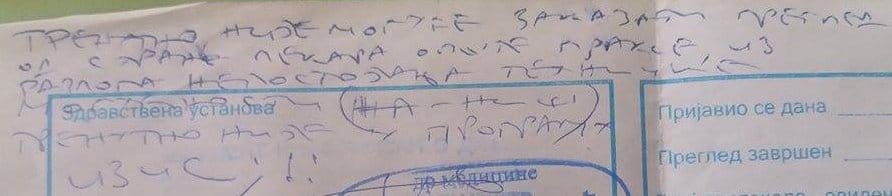 ТРЕНУТНО НИЈЕ МОГУЋЕ ЗАКАЗАТИ ПРЕГЛЕД
ОД СТРАНЕ ЛЕКАРА ОПШТЕ ПРАКСЕ ИЗ
РАЗЛОГА НЕПОСТОЈАЊА ТЕХНИЧКЕ
Здравствена установа
Пријавио се дана
ТРЕНУТНО НИЈЕ У ПРОГРАМУ
Преглед завршен
ИЗИС!!
др медицине